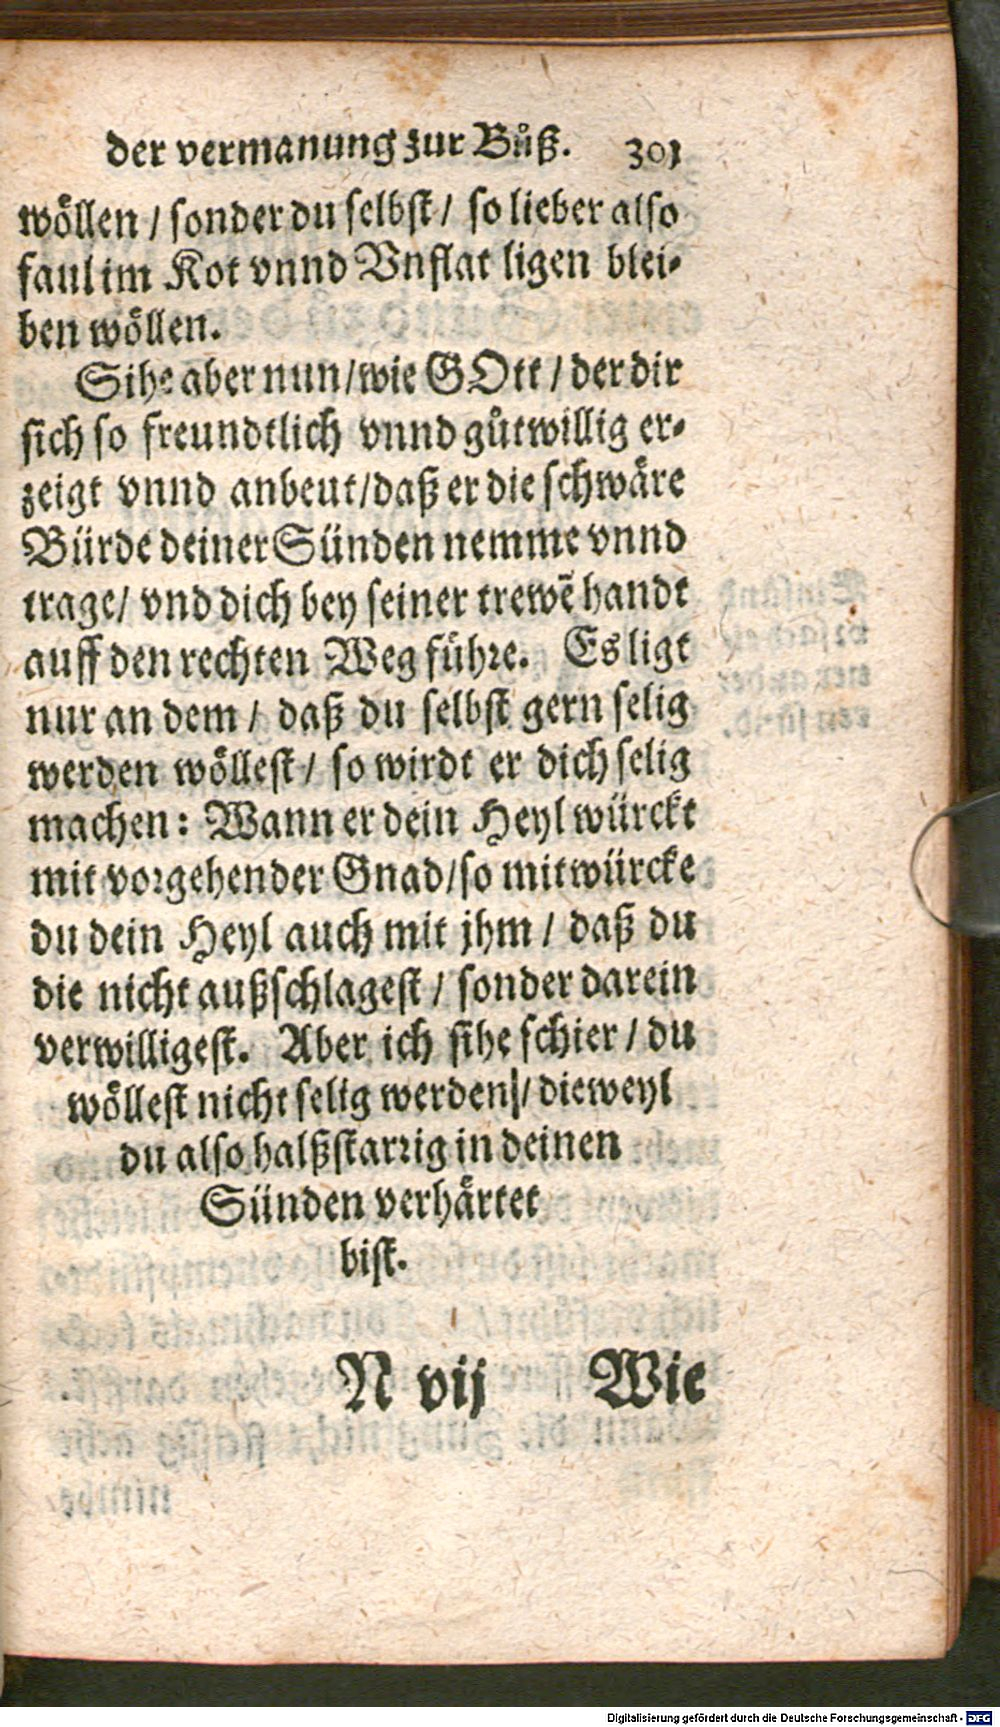 der vermanung zur Bůß. 301
wöllen / sonder du selbst / so lieber also
faul im Kot vnnd Vnflat ligen blei-
ben wöllen.
Sihe aber nun / wie GOtt / der dir
sich so freundtlich vnnd gůtwillig er-
zeigt vnnd anbeut / daß er die schwäre
Bürde deiner Sünden nemme vnnd
trage / vnd dich bey seiner trewẽ handt
auff den rechten Weg führe. Es ligt
nur an dem / daß du selbst gern selig
werden wöllest / so wirdt er dich selig
machen: Wann er dein Heyl würckt
mit vorgehender Gnad / so mitwürcke
du dein Heyl auch mit jhm / daß du
die nicht außschlagest / sonder darein
verwilligest. Aber ich sihe schier / du
wöllest nicht selig werden / dieweyl
du also halßstarrig in deinen
Sünden verhärtet
bist.
N vij Wie
Digitalisierung gefördert durch die Deutsche Forschungsgemeinschaft - DFG